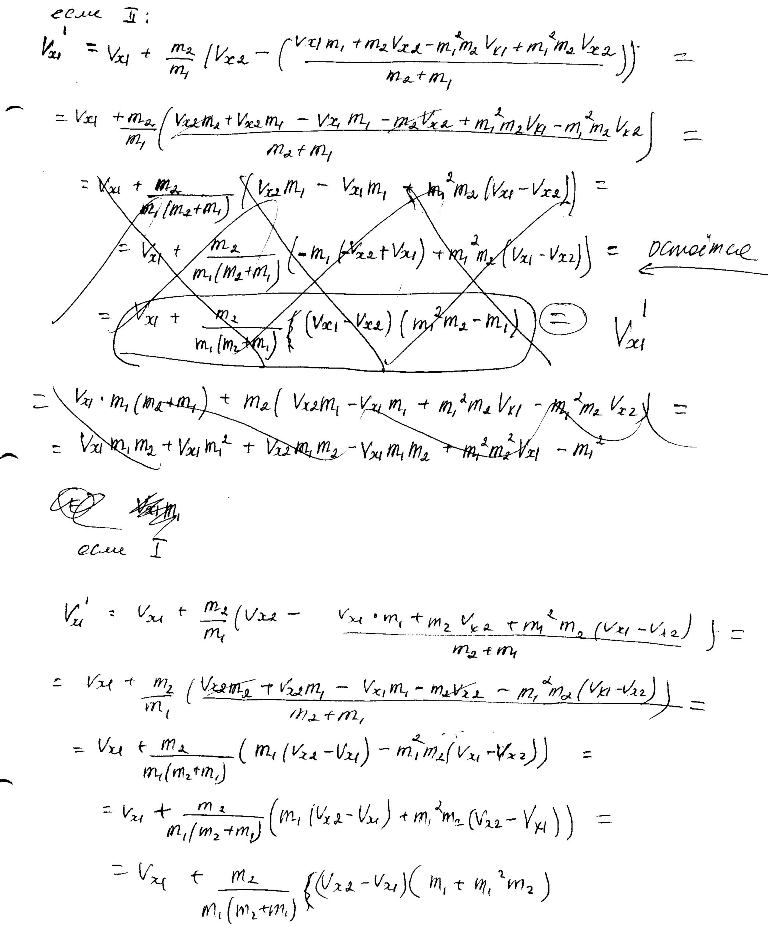 если II:
Vx1' = Vx1 + m2/m1 (Vx2 − (Vx1m1 + m2Vx2 − m1²m2Vx1 + m1²m2Vx2)/(m2+m1)) =
= Vx1 + m2/m1 (Vx2m2 + Vx2m1 − Vx1m1 − m2Vx2 + m1²m2Vx1 − m1²m2Vx2)/(m2+m1) =
= Vx1 + m2/(m1(m2+m1)) (Vx2m1 − Vx1m1 + m1²m2(Vx1−Vx2)) =
= Vx1 + m2/(m1(m2+m1)) (−m1(−Vx2+Vx1) + m1²m2(Vx1−Vx2)) = остаётся
= Vx1 + m2/(m1(m2+m1)) {(Vx1−Vx2)(m1²m2−m1) = Vx1'
= Vx1·m1(m2+m1) + m2(Vx2m1 − Vx1m1 + m1²m2Vx1 − m1²m2Vx2) =
= Vx1m1m2 + Vx1m1² + Vx2m1m2 − Vx1m1m2 + m1²m2²Vx1 − m1²
если I
Vx1' = Vx1 + m2/m1 (Vx2 − (Vx1·m1 + m2Vx2 + m1²m2(Vx1−Vx2))/(m2+m1)) =
= Vx1 + m2/m1 (Vx2m2 + Vx2m1 − Vx1m1 − m2Vx2 − m1²m2(Vx1−Vx2))/(m2+m1) =
= Vx1 + m2/(m1(m2+m1)) (m1(Vx2−Vx1) − m1²m2(Vx1−Vx2)) =
= Vx1 + m2/(m1(m2+m1)) (m1(Vx2−Vx1) + m1²m2(Vx2−Vx1)) =
= Vx1 + m2/(m1(m2+m1)) {(Vx2−Vx1)(m1+m1²m2)